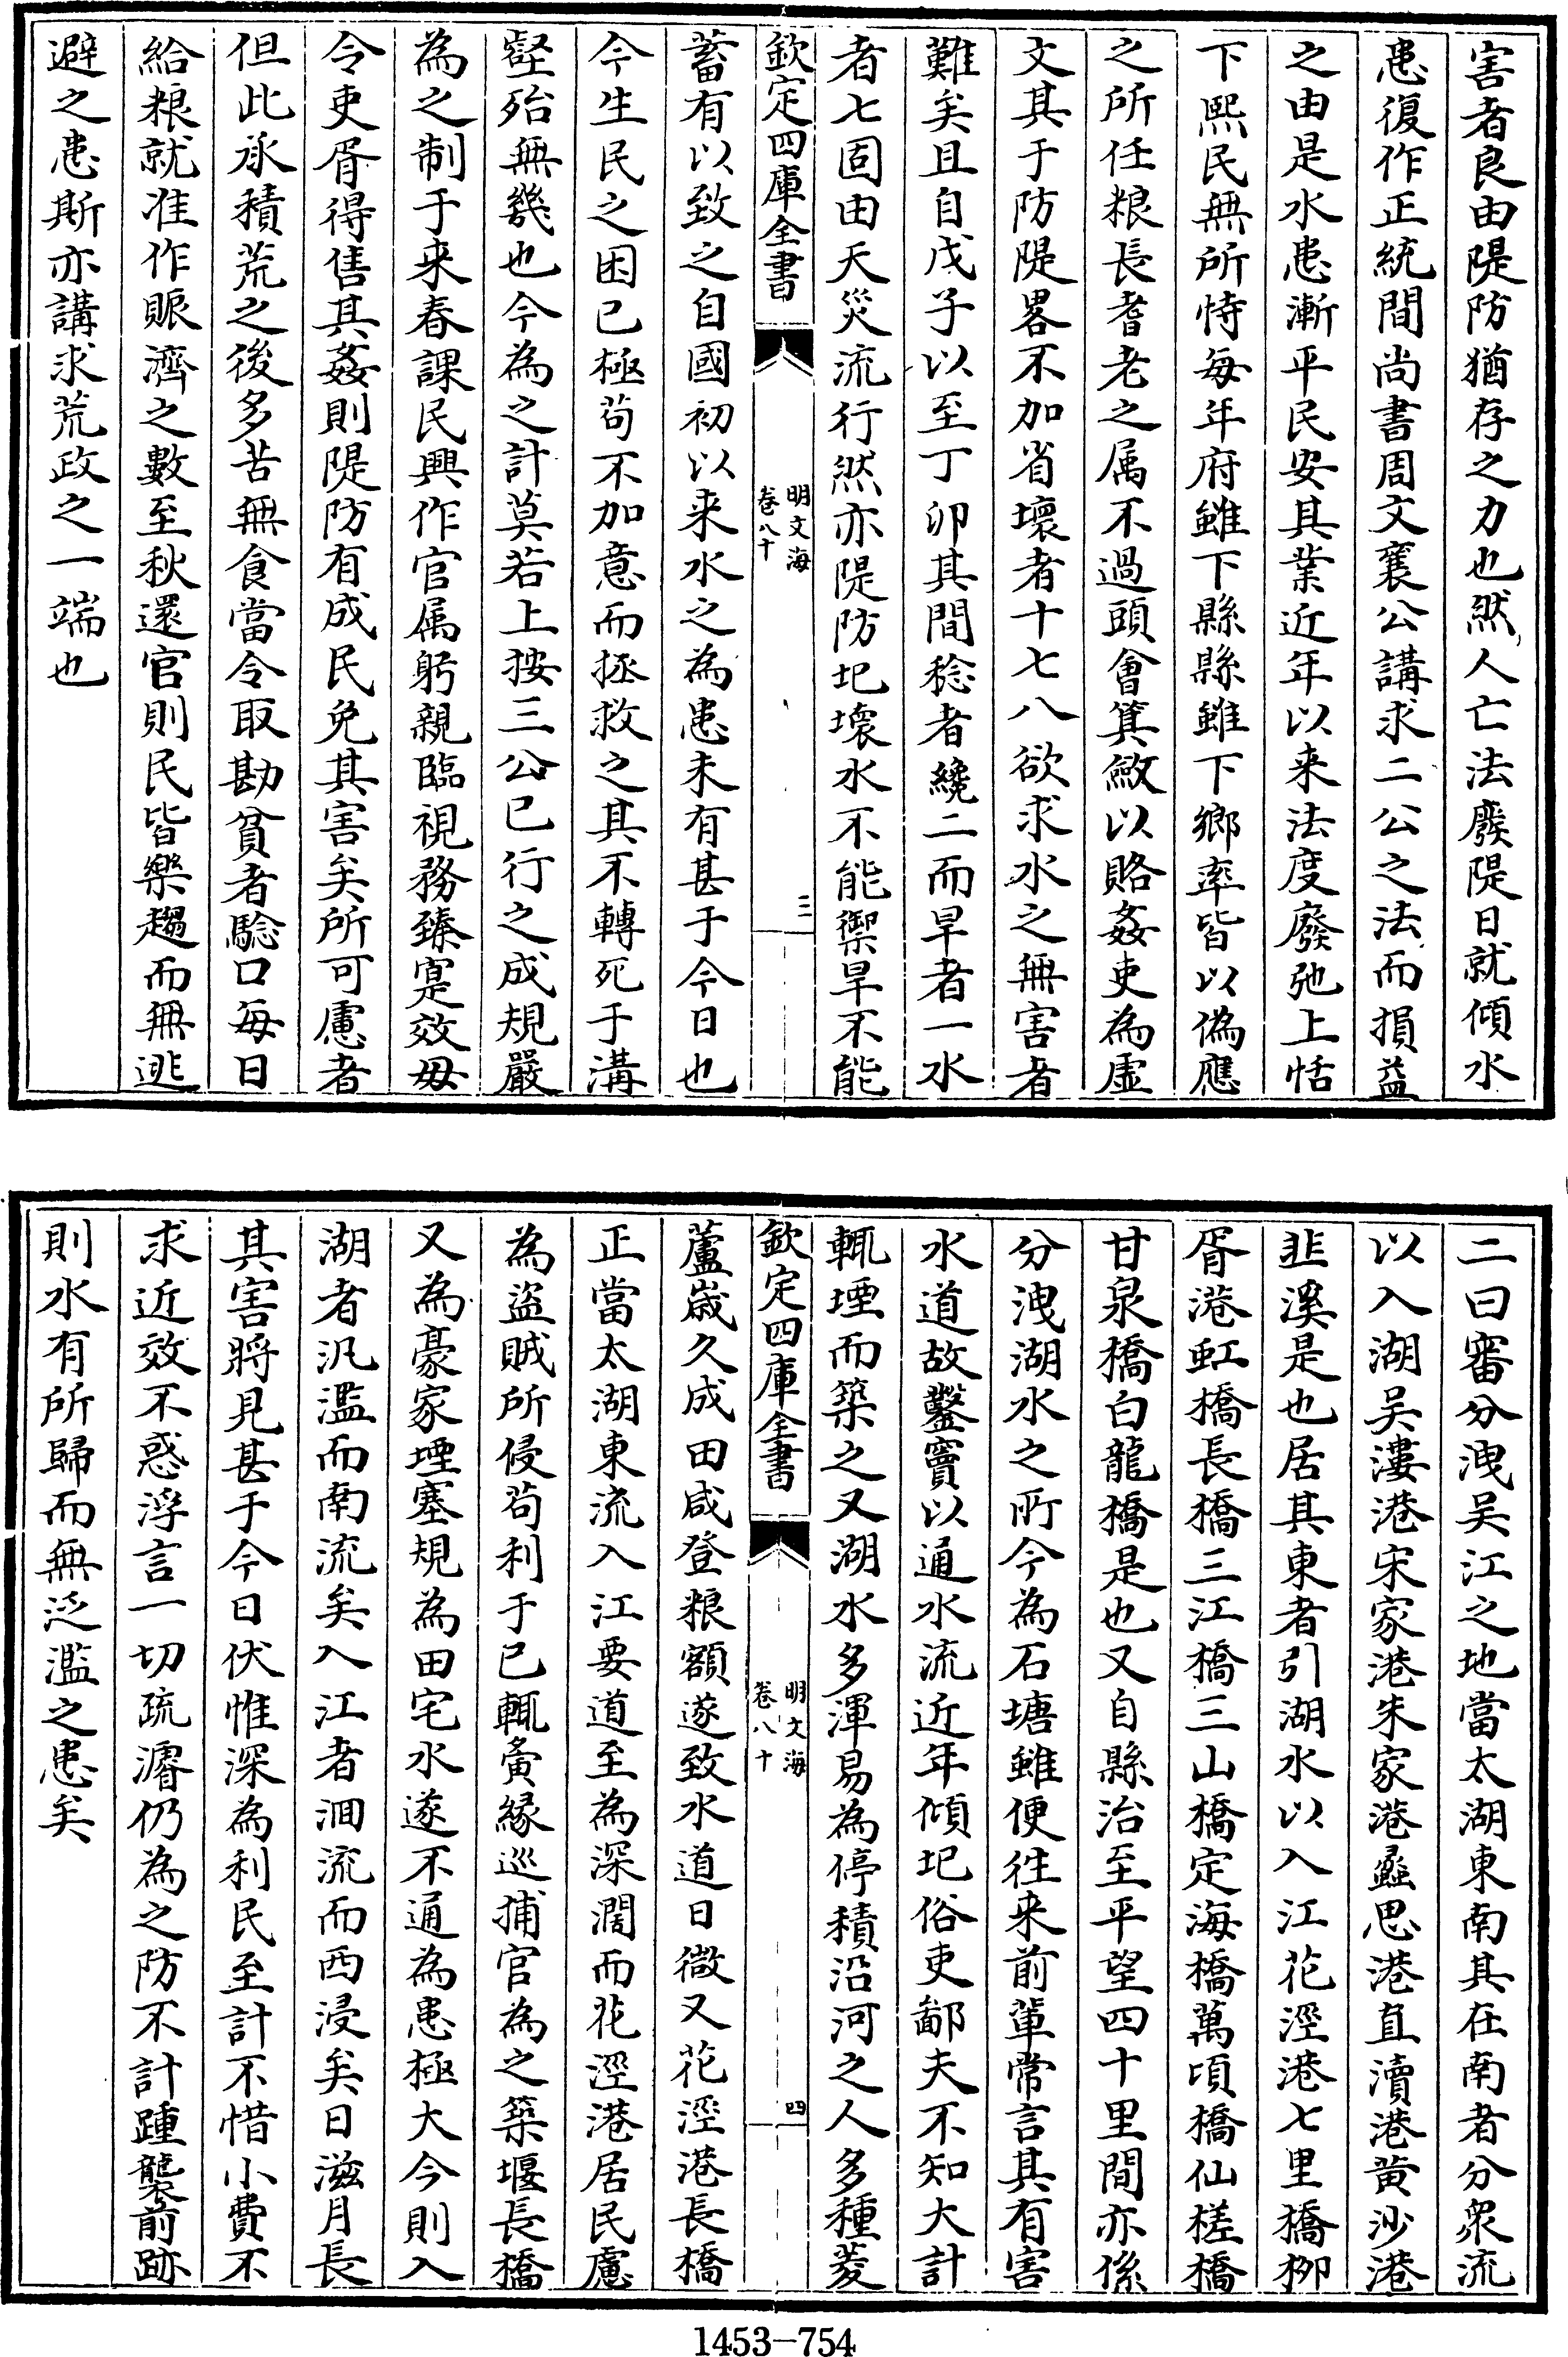 害者良由隄防猶存之力也然人亡法廢隄日就傾水
患復作正統間尚書周文襄公講求二公之法而損益
之由是水患漸平民安其業近年以来法度廢弛上恬
下熙民無所恃每年府雖下縣縣雖下鄉率皆以偽應
之所任粮長耆老之属不過頭會箕斂以賂姦吏為虚
文其于防隄畧不加省壞者十七八欲求水之無害者
難矣且自戊子以至丁卯其間稔者纔二而旱者一水
者七固由天災流行然亦隄防圮壞水不能禦旱不能
欽定四庫全書
明文海
卷八十
三
蓄有以致之自國初以来水之為患未有甚于今日也
今生民之困已極苟不加意而拯救之其不轉死于溝
壑殆無幾也今為之計莫若上按三公已行之成規嚴
為之制于来春課民興作官属躬親臨視務臻寔效毋
令吏胥得售其姦則隄防有成民免其害矣所可慮者
但此氶積荒之後多苦無食當令取勘貧者騐口每日
給粮就准作賑濟之數至秋還官則民皆樂趨而無逃
避之患斯亦講求荒政之一端也
二曰審分洩吴江之地當太湖東南其在南者分衆流
以入湖吴漊港宋家港朱家港蠡思港直瀆港黄沙港
韭溪是也居其東者引湖水以入江花涇港七里橋柳
胥港虹橋長橋三江橋三山橋定海橋萬頃橋仙槎橋
甘泉橋白龍橋是也又自縣治至平望四十里間亦係
分洩湖水之所今為石塘雖便徃来前輩常言其有害
水道故鑿竇以通水流近年傾圮俗吏鄙夫不知大計
輒堙而築之又湖水多渾易為停積沿河之人多種菱
欽定四庫全書
明文海
卷八十
四
蘆嵗久成田咸登粮額遂致水道日微又花涇港長橋
正當太湖東流入江要道至為深濶而花涇港居民慮
為盜賊所侵苟利于已輒夤緣巡捕官為之築堰長橋
又為豪家堙塞規為田宅水遂不通為患極大今則入
湖者汎濫而南流矣入江者洄流而西浸矣日滋月長
其害將見甚于今日伏惟深為利民至計不惜小費不
求近效不惑浮言一切疏濬仍為之防不計踵襲前跡
則水有所歸而無泛濫之患矣
1453-754